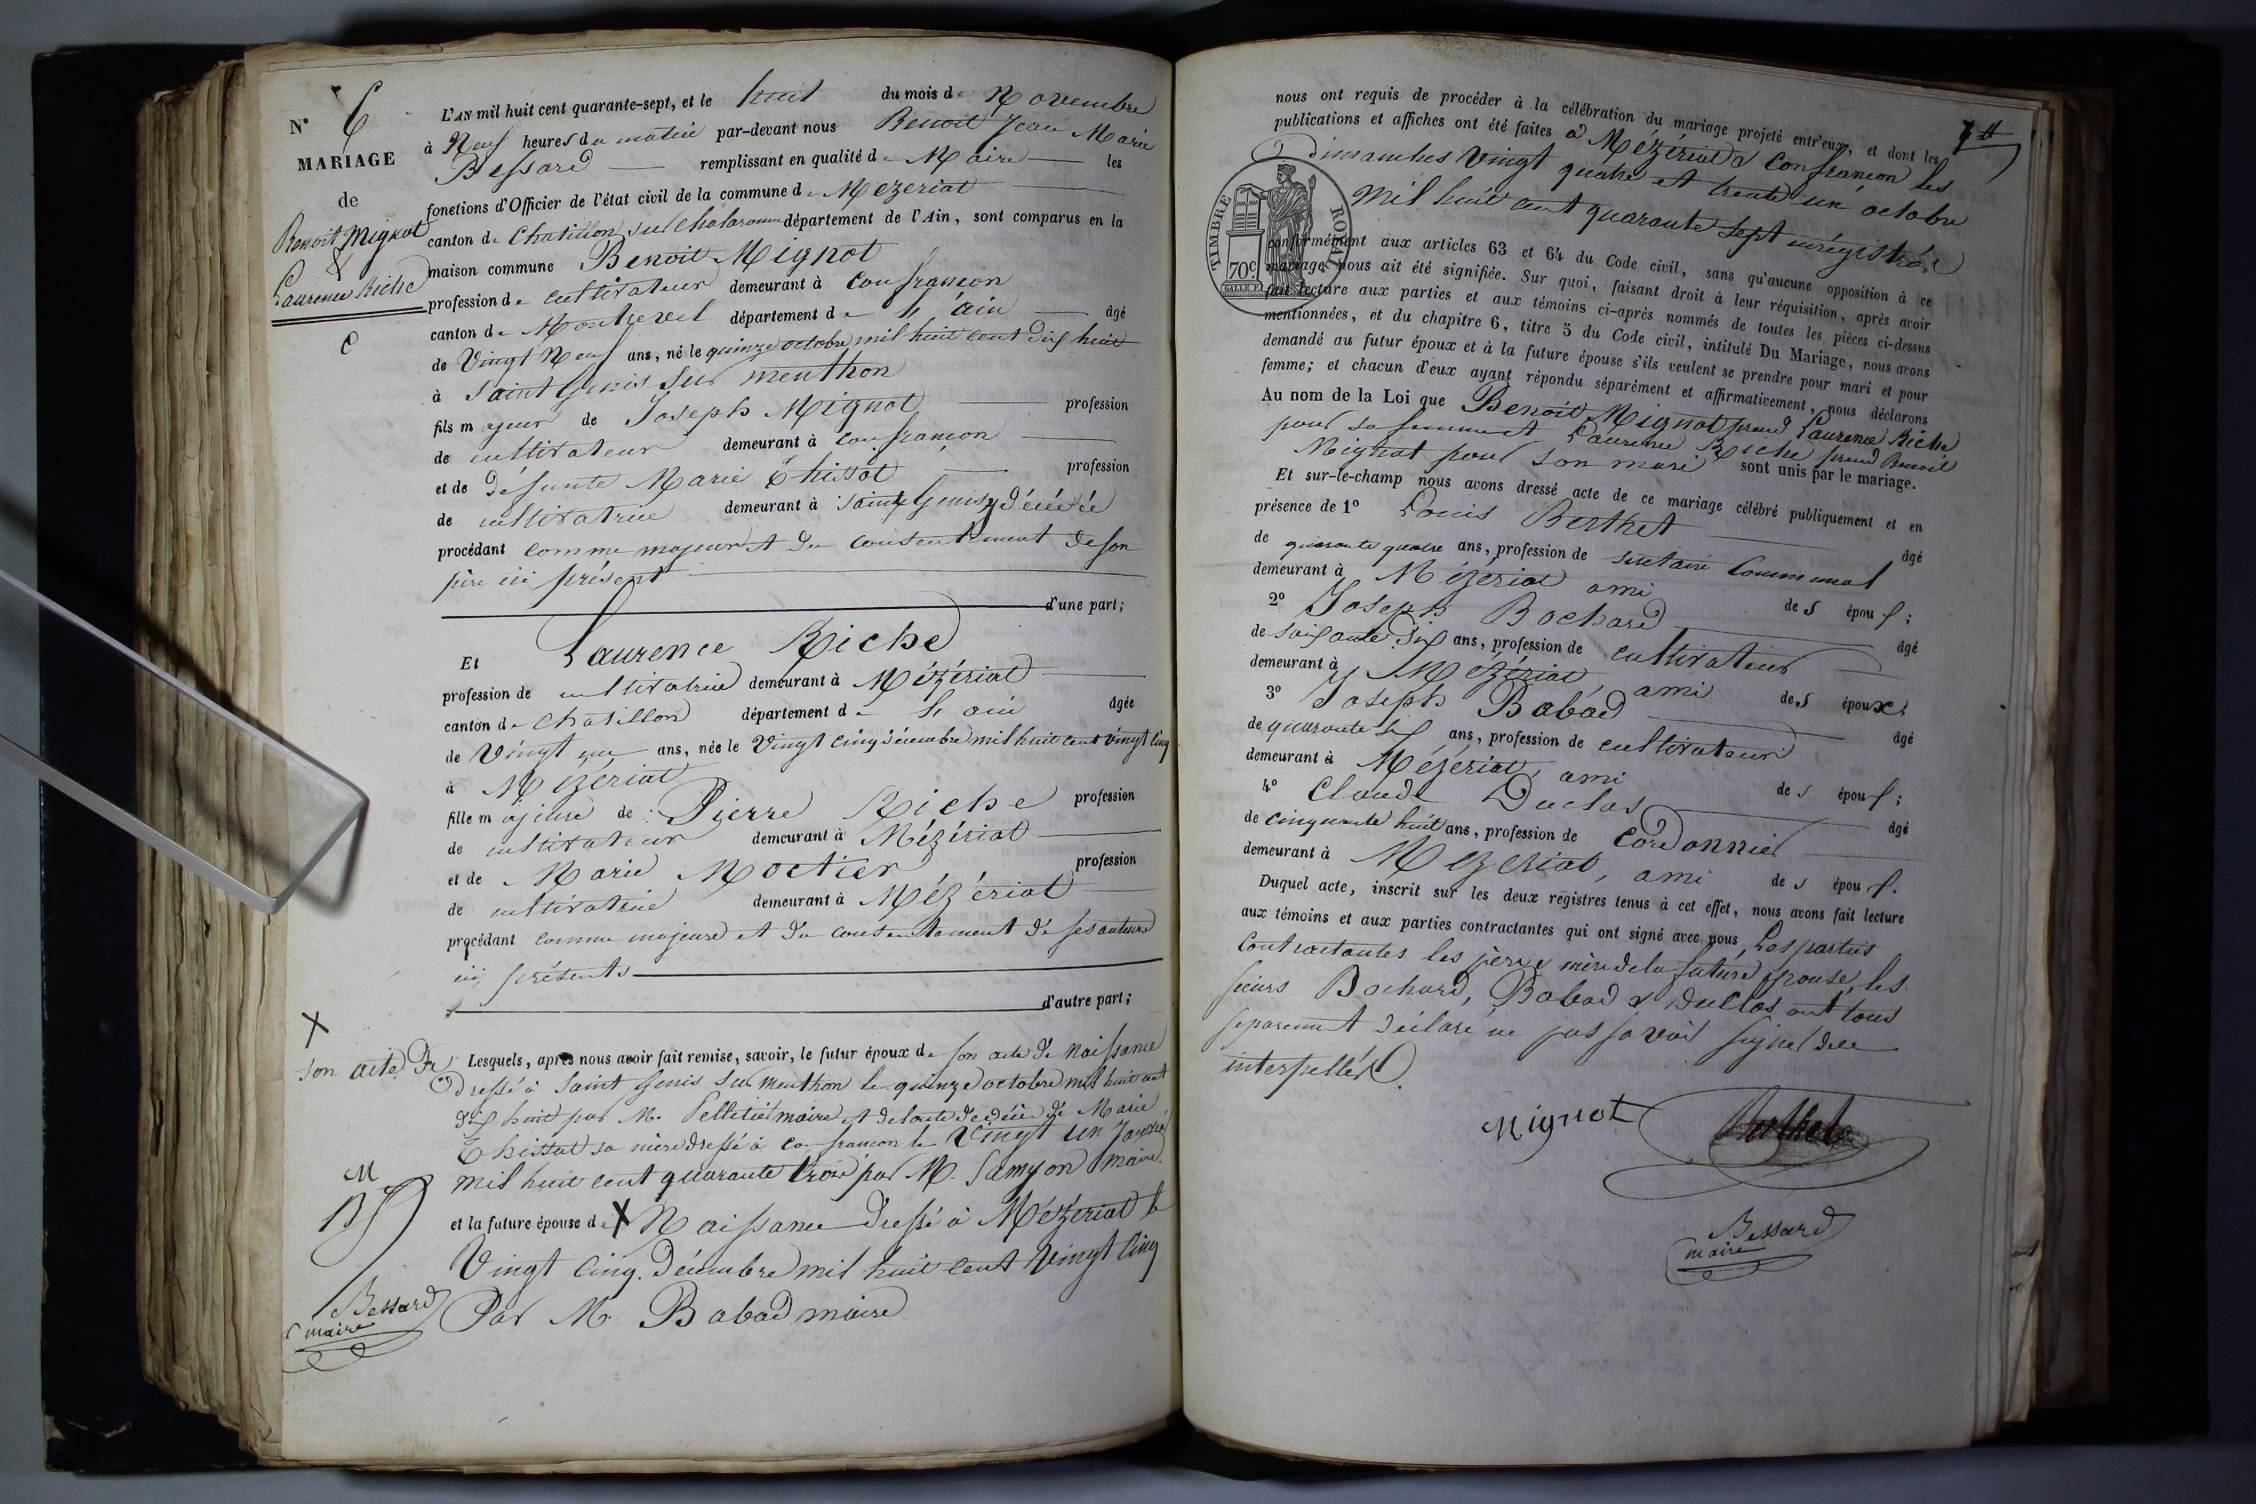 N° 6
MARIAGE
de
Benoit Mignot
&
Laurence Riche
L'AN mil huit cent quarante-sept, et le huit du mois de Novembre
à Neuf heures du matin par-devant nous Benoit Jean Marie
Bessard remplissant en qualité de Maire les
fonctions d'Officier de l'état civil de la commune de Mezeriat
canton de Chatillon sur Chalaronne département de l'Ain, sont comparus en la
maison commune Benoit Mignot
profession de cultivateur demeurant à confrançon
canton de Montrevel département de l'ain âgé
de Vingt Neuf ans, né le quinze octobre mil huit cent dix huit
à Saint Genis sur menthon
fils majeur de Joseph Mignot profession
de cultivateur demeurant à confrançon
et de défunte Marie Thissot profession
de cultivatrice demeurant à Saint Genis y décédée
procédant comme majeur et du consentement de son
père ici présent
d'une part;
Et Laurence Riche
profession de cultivatrice demeurant à Mézériat
canton de Chatillon département de l'ain âgée
de Vingt un ans, née le Vingt cinq décembre mil huit cent vingt cinq
à Mézériat
fille majeure de Pierre Riche profession
de cultivateur demeurant à Mézériat
et de Marie Moctier profession
de cultivatrice demeurant à Mézériat
procédant comme majeure et du consentement de ses auteurs
ici présents
d'autre part;
X
son acte De
Lesquels, après nous avoir fait remise, savoir, le futur époux de son acte de Naissance
dressé à Saint Genis sur menthon le quinze octobre mil huit cent
dix huit par M. Pelletier maire et de l'acte de décès de Marie
Thissot sa mère dressé à confrancon le Vingt un Janvier
mil huit cent quarante trois par M. Samyon maire.
et la future épouse de X Naissance dressé à Mézériat le
Vingt cinq décembre mil huit cent Vingt cinq
Par M. Babad maire
Bessard
maire
7
nous ont requis de procéder à la célébration du mariage projeté entr'eux, et dont les
publications et affiches ont été faites à Mézériat & Confrancon les
Dimanches Vingt quatre et trente un octobre
mil huit cent quarante sept
TIMBRE ROYAL
70c
conformément aux articles 63 et 64 du Code civil, sans qu'aucune opposition à ce
mariage nous ait été signifiée. Sur quoi, faisant droit à leur réquisition, après avoir
fait lecture aux parties et aux témoins ci-après nommés de toutes les pièces ci-dessus
mentionnées, et du chapitre 6, titre 5 du Code civil, intitulé Du Mariage, nous avons
demandé au futur époux et à la future épouse s'ils veulent se prendre pour mari et pour
femme; et chacun d'eux ayant répondu séparément et affirmativement, nous déclarons
Au nom de la Loi que Benoit Mignot prend Laurence Riche
pour sa femme et Laurence Riche prend Benoit
Mignot pour son mari sont unis par le mariage.
Et sur-le-champ nous avons dressé acte de ce mariage célébré publiquement et en
présence de 1° Louis Berthet âgé
de quarante quatre ans, profession de secretaire Communal
demeurant à Mézériat ami des époux;
2° Joseph Bochard âgé
de soixante dix ans, profession de cultivateur
demeurant à Mézériat, ami des époux;
3° Joseph Babad âgé
de quarante six ans, profession de cultivateur
demeurant à Mézériat, ami des époux;
4° Claude Duclos âgé
de cinquante huit ans, profession de cordonnier
demeurant à Mézériat, ami des époux.
Duquel acte, inscrit sur les deux registres tenus à cet effet, nous avons fait lecture
aux témoins et aux parties contractantes qui ont signé avec nous, Les parties
contractantes les père & mère de la future épouse, les
sieurs Bochard, Babad & Duclos ont tous
separement déclaré ne pas savoir signer de ce
interpellés.
Mignot Berthet
Bessard
maire